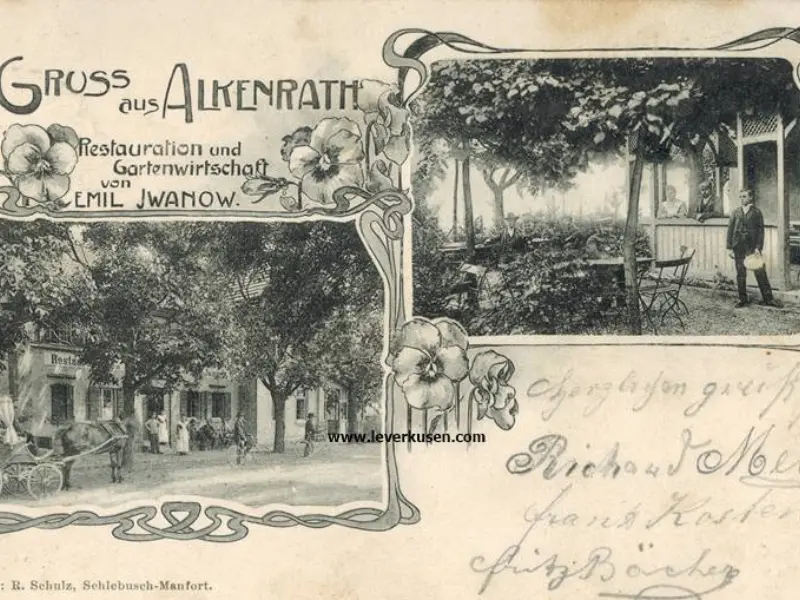 GRUSS aus ALKENRATH
Restauration und
Gartenwirtschaft
von
EMIL JWANOW.
Resta
www.leverkusen.com
Herzlichen
Richard
Franz Kosten
Fritz Böcher
: R. Schulz, Schlebusch-Manfort.